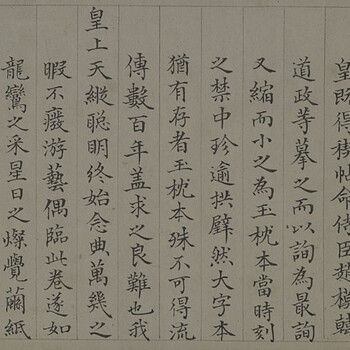 皇既得禊帖命侍臣趙模韓
道政等摹之而以詢為最詢
又縮而小之為玉枕本當時刻
之禁中珍逾拱璧然大字本
猶有存者玉枕本殊不可得流
傳數百年盖求之良難也我
皇上天縱聰明終始念典萬幾之
暇不癈游藝偶臨此卷遂如
龍鸞之采星日之燦覺繭紙